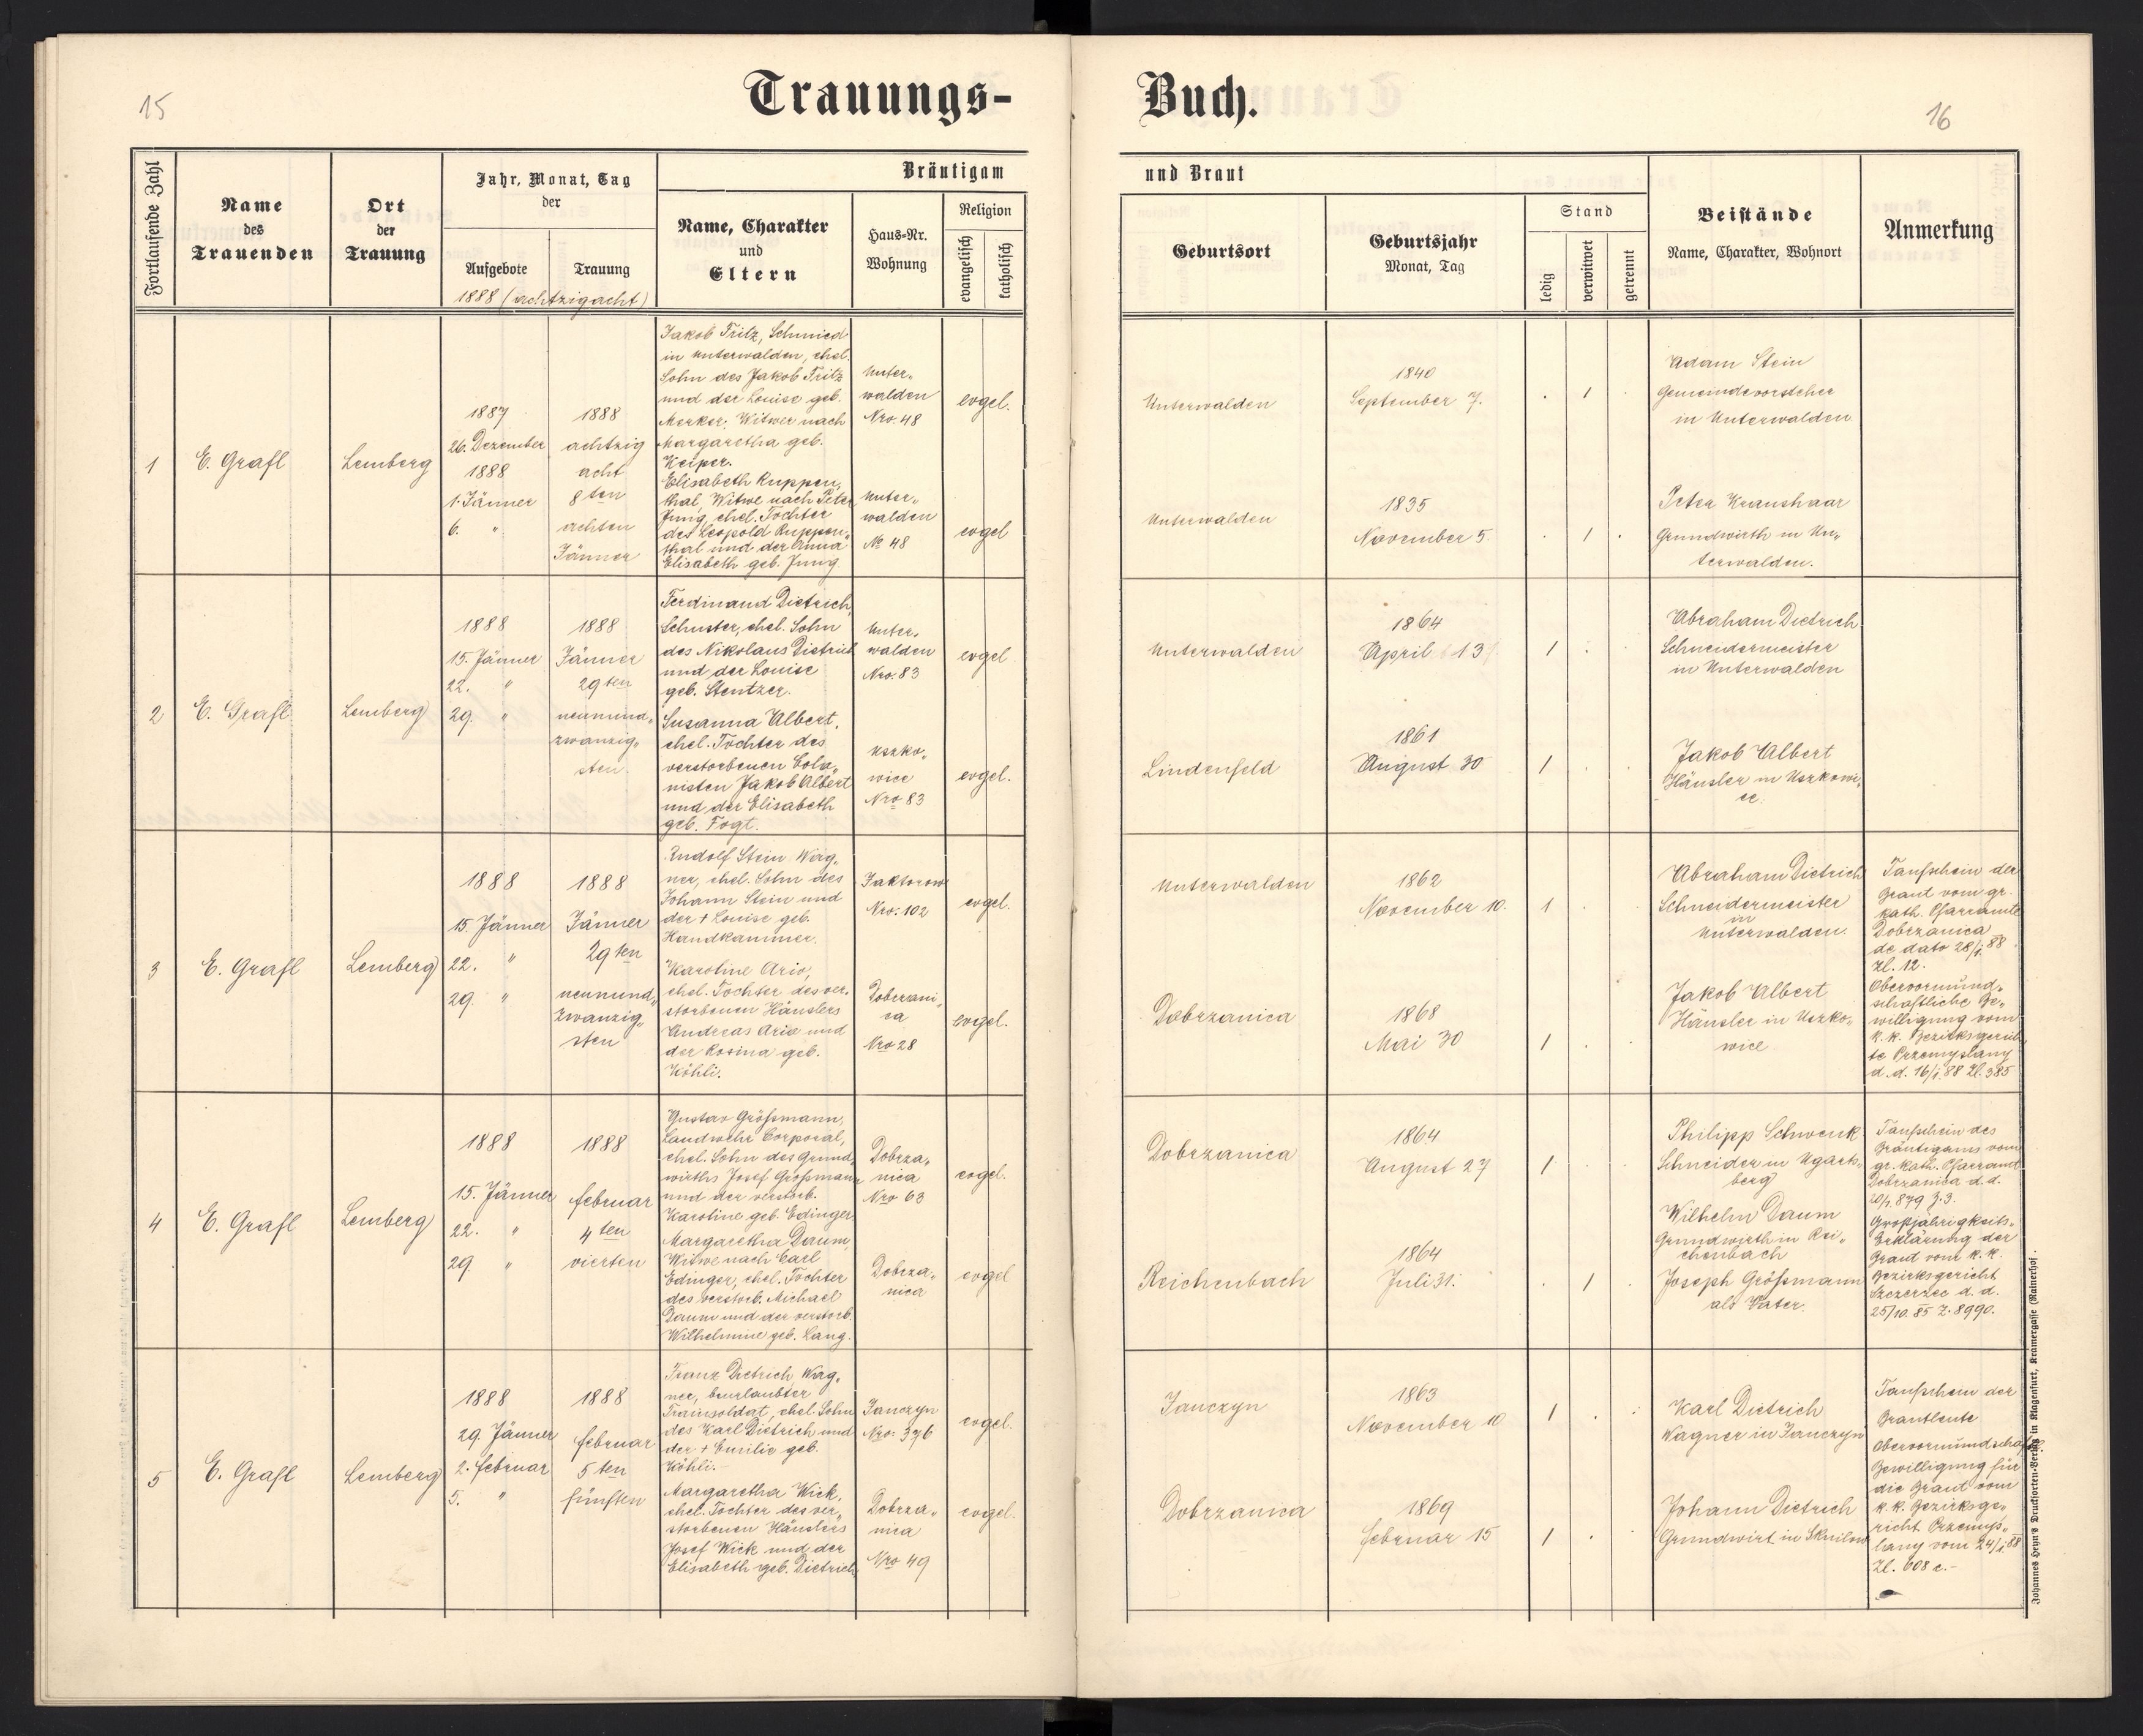 15
Trauungs-
Buch.
16
Fortlaufende Zahl
Name
des
Trauenden
Ort
der
Trauung
Jahr, Monat, Tag
der
Aufgebote
Trauung
1888 (achtzigacht)
Bräutigam
Name, Charakter
und
Eltern
Haus-Nr.
Wohnung
Religion
evangelisch
katholisch
und Braut
Geburtsort
Geburtsjahr
Monat, Tag
Stand
ledig
verwitwet
getrennt
Beistände
Name, Charakter, Wohnort
Anmerkung
1
E. Grafl
Lemberg
1887
26. Dezember
1888
1. Jänner
6. "
1888
achtzig
acht
8ten
achten
Jänner
Jakob Fritz, Schmied
in Unterwalden, ehel.
Sohn des Jakob Fritz
und der Louise geb.
Merker, Witwer nach
Margaretha geb.
Keiper.
Unter„
walden
Nro. 48
evgel.
Unterwalden
1840
September 7.
. 1 .
Adam Stein
Gemeindevorsteher
in Unterwalden
Elisabeth Ruppen„
thal, Witwe nach Peter
Jung, ehel. Tochter
des Leopold Ruppen„
thal und der Anna
Elisabeth geb. Jung
Unter„
walden
No 48
evgel
Unterwalden
1835
November 5.
. 1 .
Peter Kraushaar
Grundwirth in Un„
terwalden.
2
E. Grafl
Lemberg
1888
15. Jänner
22. "
29. "
1888
Jänner
29ten
neunund„
zwanzig„
sten
Ferdinand Dietrich,
Schuster, ehel. Sohn
des Nikolaus Dietrich
und der Louise
geb. Stentzer.
Unter„
walden
Nro. 83
evgel
Unterwalden
1864
April 13
1 . .
Abraham Dietrich
Schneidermeister
in Unterwalden
Susanna Albert,
ehel. Tochter des
verstorbenen Colo„
nisten Jakob Albert
und der Elisabeth
geb. Fogt.
Uszko„
wice
Nro 83
evgel.
Lindenfeld
1861
August 30
1 . .
Jakob Albert
Häusler in Uszkowi„
ce.
3
E. Grafl
Lemberg
1888
15. Jänner
22. "
29 "
1888
Jänner
29ten
neunund„
zwanzig„
sten
Rudolf Stein Wag„
ner, ehel. Sohn des
Johann Stein und
der + Louise geb.
Handkammer.
Faktorow
Nro. 102
evgel.
Unterwalden
1862
November 10.
1 .
Abraham Dietrich
Schneidermeister
in
Unterwalden
Karoline Ario,
ehel. Tochter des ver„
storbenen Häuslers
Andreas Ario und
der Rosina geb.
Köhli.
Dobrzani„
ca
Nro 28
evgel.
Dobrzanica
1868
Mai 30
1 .
Jakob Albert
Häusler in Uszko„
wice
Taufschein der
Braut vom gr.
kath. Pfarramte
Dobrzanica
de dato 28/1. 88
Zl. 12.
Obervormund„
schaftliche Be„
willigung vom
k. k. Bezirksgerich
te Przemyslany
d. d. 16/1. 88 Zl. 385
4
E. Grafl
Lemberg
1888
15. Jänner
22. "
29 "
1888
Februar
4ten
vierten
Gustav Größmann,
Landwehr Corporal,
ehel. Sohn des Grund„
wirths Josef Großmann
und der verstorb.
Karoline geb. Edinger
Dobrza„
nica
Nro 63
evgel.
Dobrzanica
1864
August 27
1 . .
Philipp Schwenk
Schneider in Ugarts„
berg
Margaretha Daum,
Witwe nach Carl
Edinger, ehel. Tochter
des verstorb. Michael
Daum und der verstorb.
Wilhelmine geb. Lang.
Dobrza„
nica
evgel
Reichenbach
1864
Juli 31.
. 1 .
Wilhelm Daum
Grundwirth in Rei„
chenbach
Joseph Größmann
als Vater.
Taufschein des
Bräutigams vom
gr. kath. Pfarramt
Dobrzanica d. d.
20/1. 879 Z. 3.
Großjährigkeits„
Erklärung der
Braut vom k. k.
Bezirksgericht
Szczerzec d. d.
25/10. 85 Z. 8990.
5
E. Grafl
Lemberg
1888
29. Jänner
2. Februar
5. "
1888
Februar
5ten
fünften
Franz Dietrich, Wag„
ner, beurlaubter
Trainsoldat, ehel. Sohn
des Karl Dietrich und
der + Emilie geb.
Köhli.
Janczyn
Nro. 376
evgel.
Janczyn
1863
November 10
1 . .
Karl Dietrich
Wagner in Janczyn
Margaretha Wick,
ehel. Tochter des ver„
storbenen Häuslers
Josef Wick und der
Elisabeth geb. Dietrich
Dobrza„
nica
Nro 49
evgel.
Dobrzanica
1869
Februar 15
1 .
Johann Dietrich
Grundwirt in Sknilow
Taufschein der
Brautleute
Bewilligung für
die Braut vom
k. k. Bezirksge„
richt Przemys„
lany vom 24/1. 88
Zl. 608 c.-
Johannes Heyn's Drucksorten-Verlag in Klagenfurt, Kramergasse (Rainerhof).